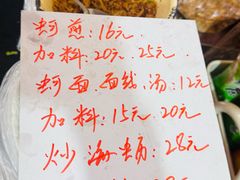 蚵煎:16元
加料:20元.25元.
蚵面.面线.汤:12元
加料:15元.20元
炒海蛎:28元